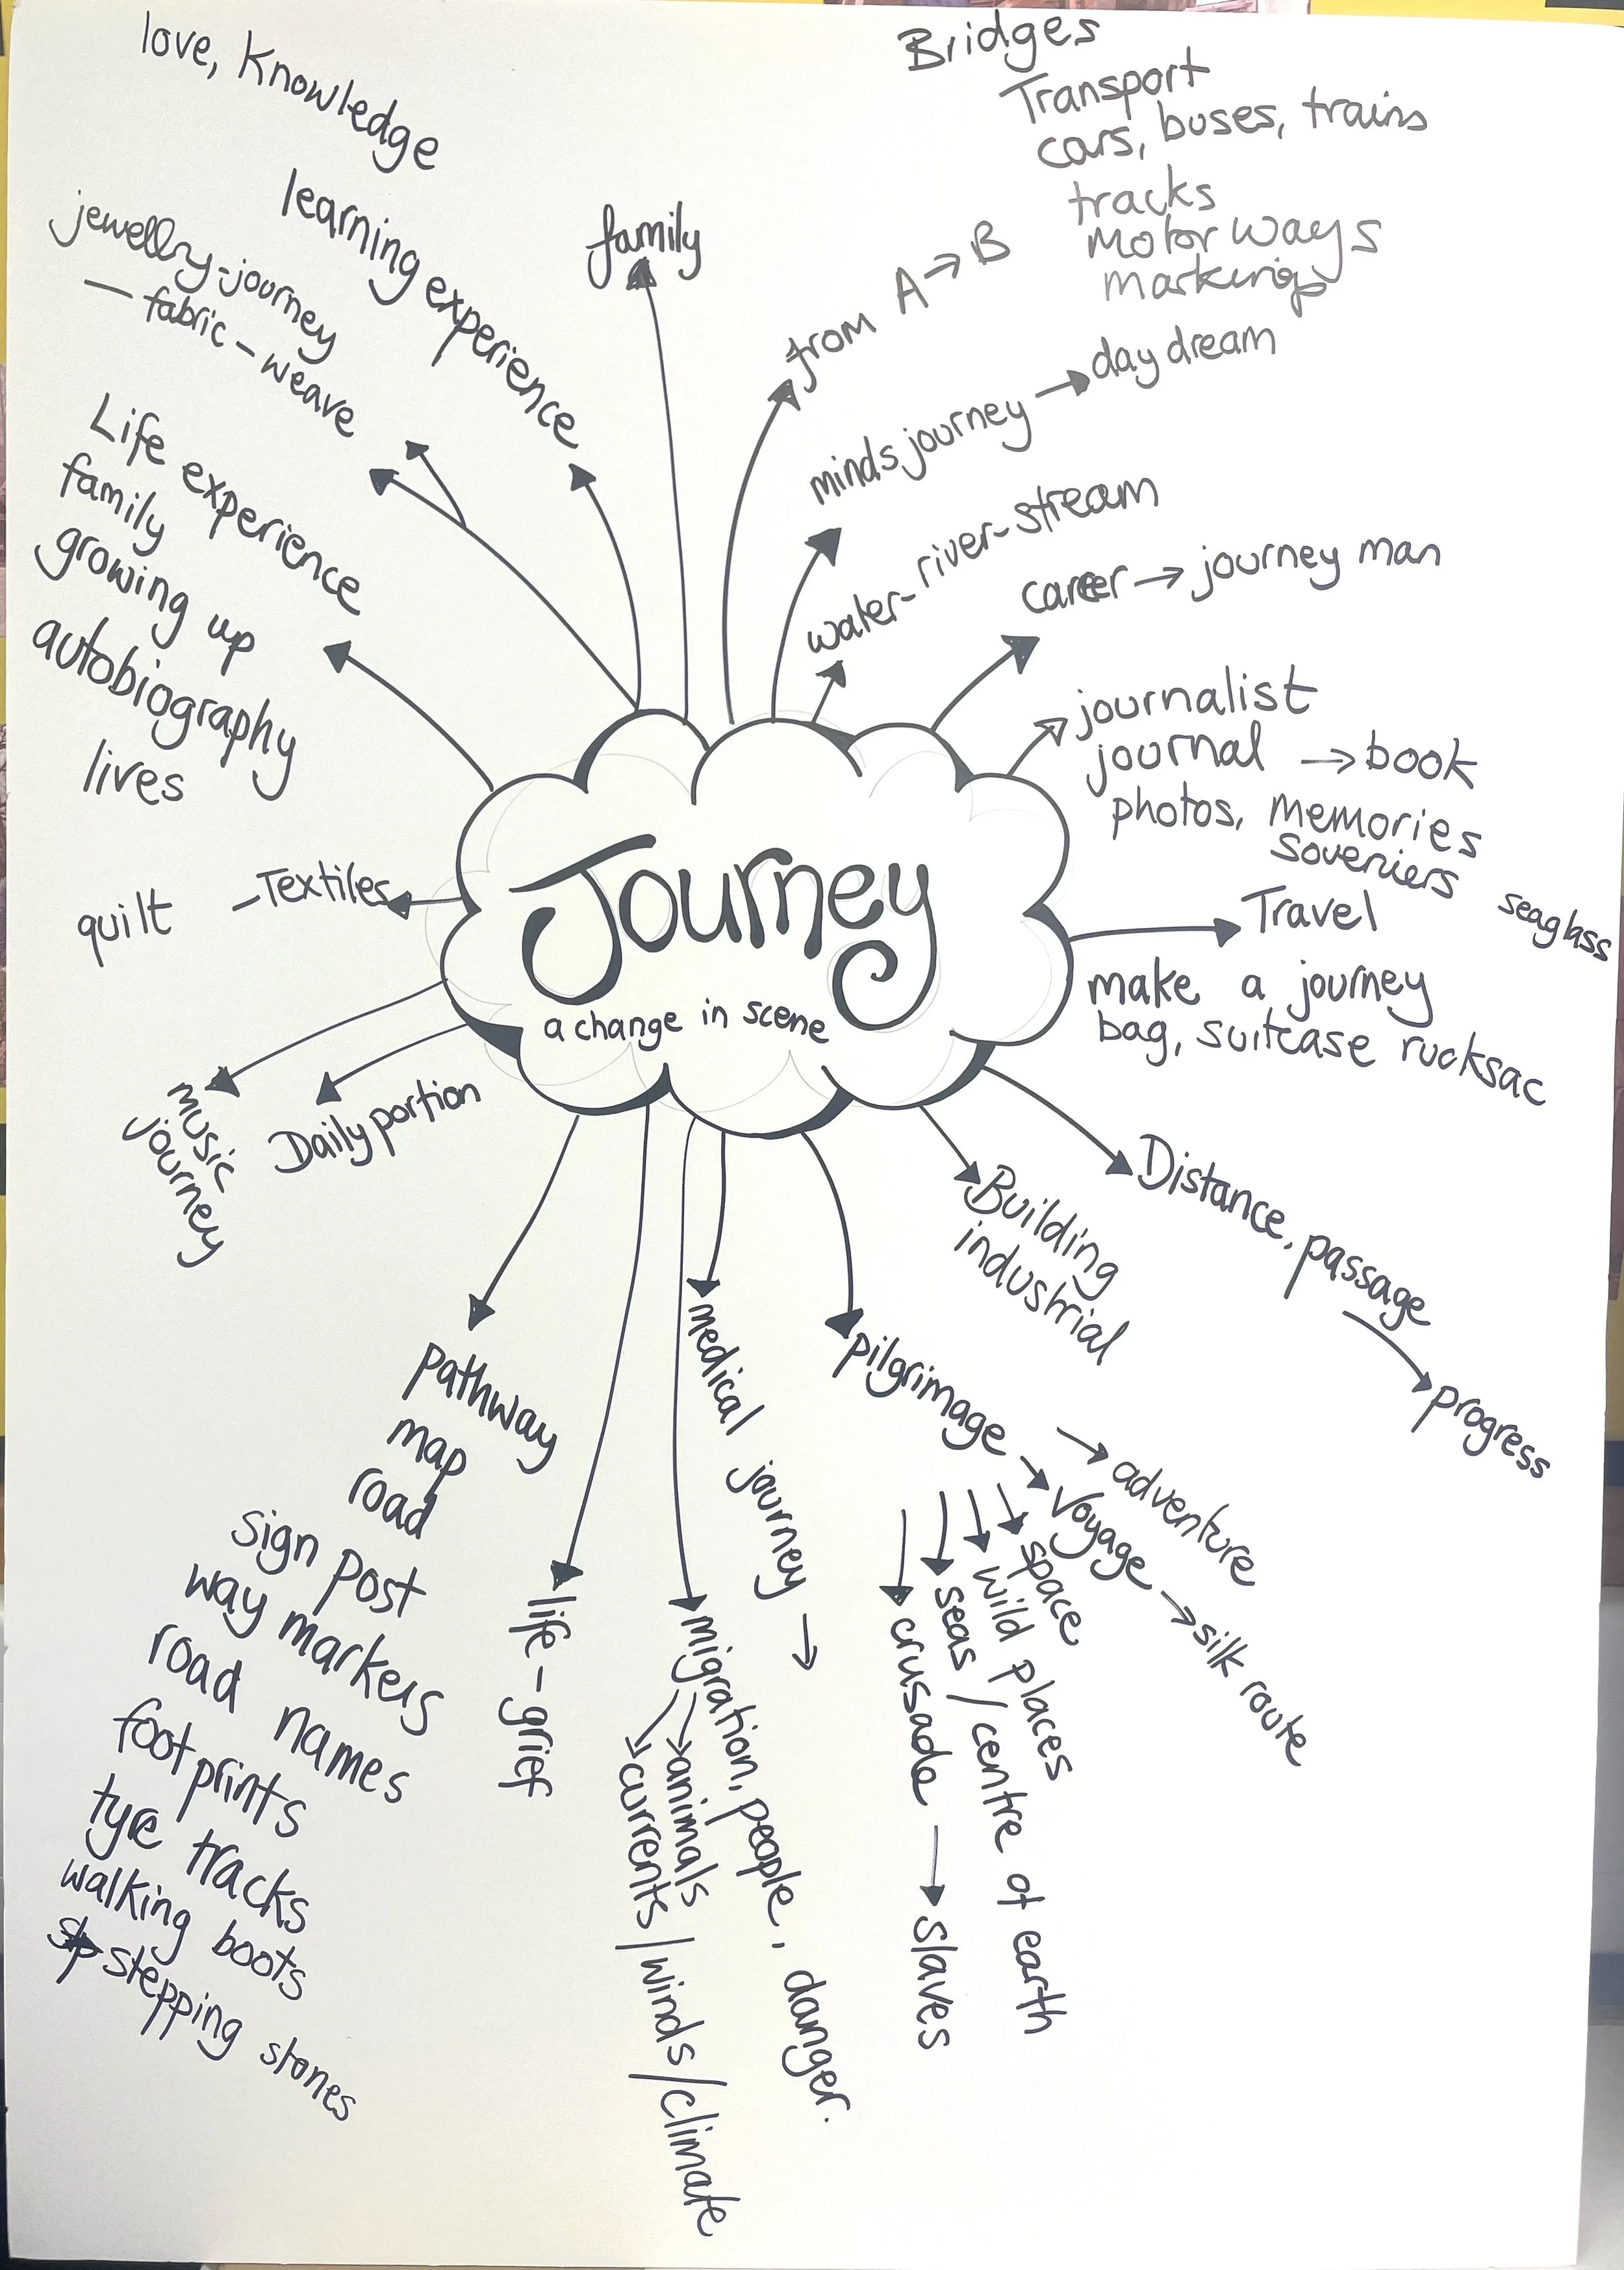 love, Knowledge
learning experience
jewellry-journey
– fabric – weave
Life experience
family
growing up
autobiography
lives
quilt – Textiles
music
journey
Daily portion
family
from A → B
Bridges
Transport
cars, buses, trains
tracks
Motor ways
markings
minds journey → day dream
water-river-stream
career → journey man
journalist
journal → book
photos, memories
soveniers
seaglass
Travel
make a journey
bag, suitcase rucksac
Journey
a change in scene
Distance, passage
→ progress
Building
industrial
pilgrimage
→ adventure
→ voyage → silk route
→ space
→ wild places
→ seas / centre of earth
→ crusade → slaves
medical journey →
migration, people, danger.
→ animals
→ currents / winds / climate
life – grief
pathway
map
road
sign post
way markers
road names
foot prints
tyre tracks
walking boots
stepping stones